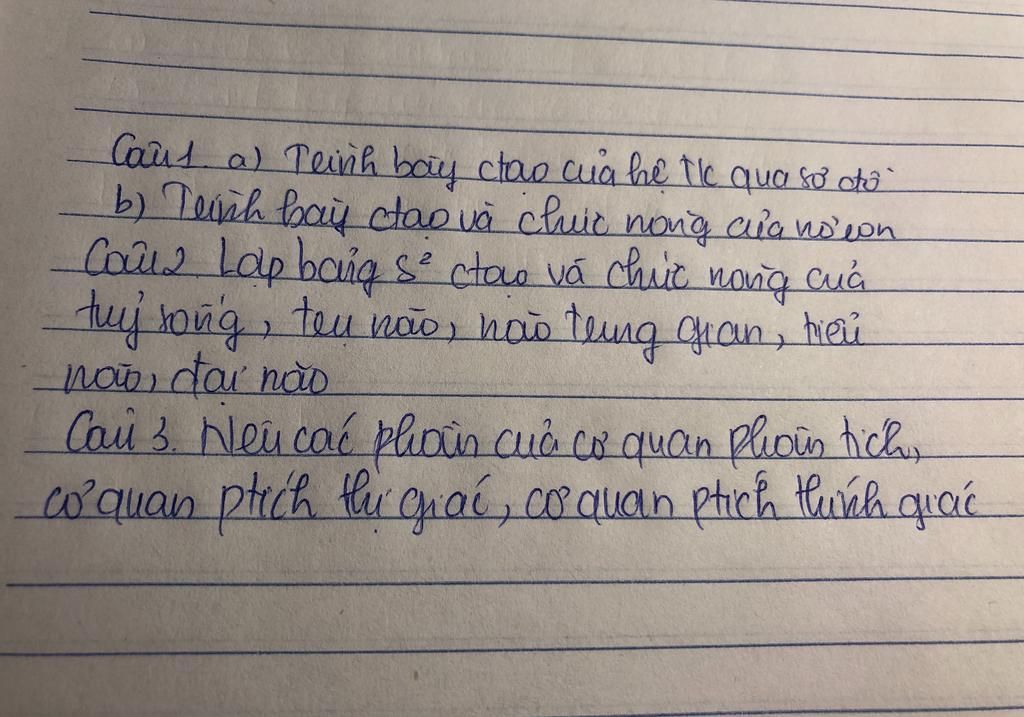 Câu 1 a) Trình bày ctạo của hệ TK qua sơ đồ
b) Trình bày ctạo và chức năng của nơron
Câu 2. Lập bảng s² ctạo và chức năng của
tuỷ sống, trụ não, não trung gian, tiểu
não, đại não
Câu 3. Nêu các phần của cơ quan phân tích,
cơ quan ptích thị giác, cơ quan ptích thính giác